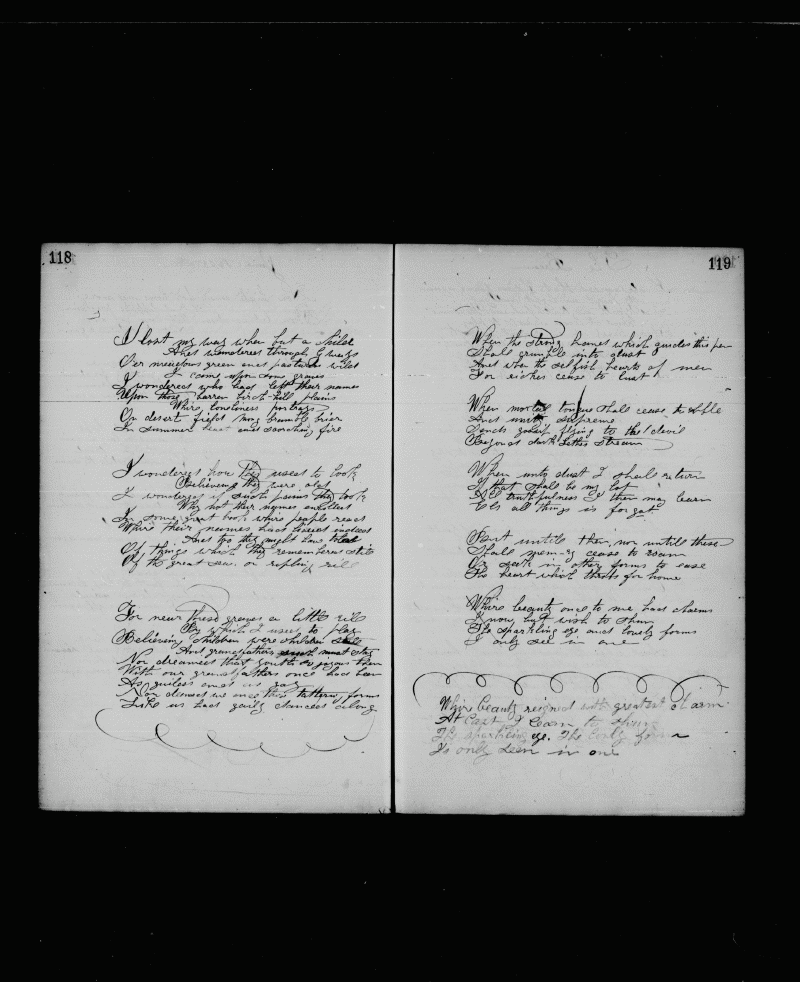 118
I lost my way when but a child
And wandered through
O'er meadows green and pastures wild
I came upon some graves
I wondered who had left their names
Upon those barren birch hill plains
Where loneliness portrays
On desert field may bramble brier
In summer heat and scorching fire
I wondered how they used to look
Believing they were old
I wondered if such pains they took
Why not their names enrolled
In some great book where people read
Where their names had
And too they might have told
Of things which they remember still
Of the great sea or rippling rill
For near these graves a little rill
By which I used to play
Believing children were children still
And grandfathers must stay
Nor dreamed that youth so joyous then
With our grandfathers once had been
As guiless and as gay
Nor deemed we once this tottering forms
Like us had gaily danced along
119
When the strong hand which guides this pen
Shall crumble into dust
And when the selfish hearts of men
For riches cease to lust
When mortal tongue shall cease to
And supreme
gossip flying to the devil
Beyond dark stream
When unto dust I shall return
If that shall be my lot
All truthfulness I then may learn
all things is forgot
But untill then, nor untill these
Shall memory cease to roam
Or seek in other forms to ease
The heart which throbs for home
Where beauty once to me had charms
I now but wish to shun
The sparkling eye and lovely forms
I only see in one
Where beauty reigned with greatest charm
At last I learn to shun
The sparkling eye. The lovely form
Is only seen in one